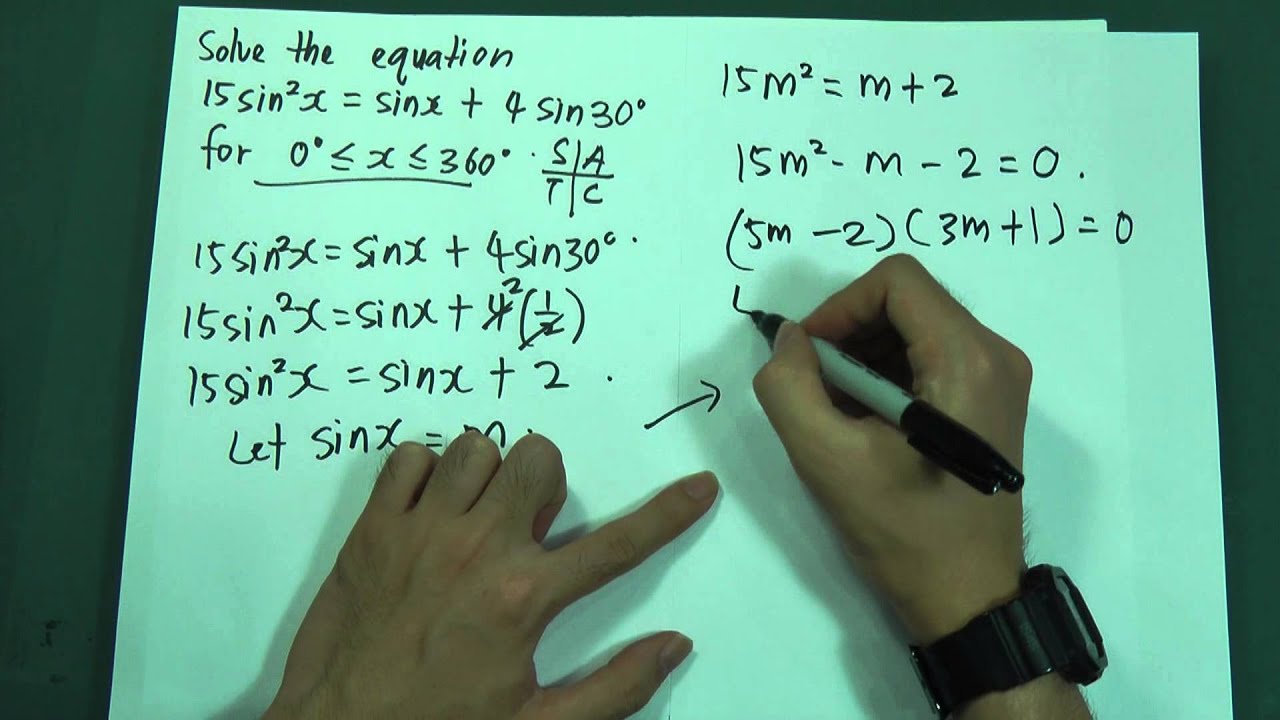 Solve the equation
15sin²x = sinx + 4 sin30°
for 0° ≤ x ≤ 360° .
S|A
T|C
15sin²x = sinx + 4sin30° .
15sin²x = sinx + 4² (1/2)
15sin²x = sinx + 2 .
Let sinx = m .
→
15m² = m + 2
15m² - m - 2 = 0 .
(5m - 2)(3m + 1) = 0